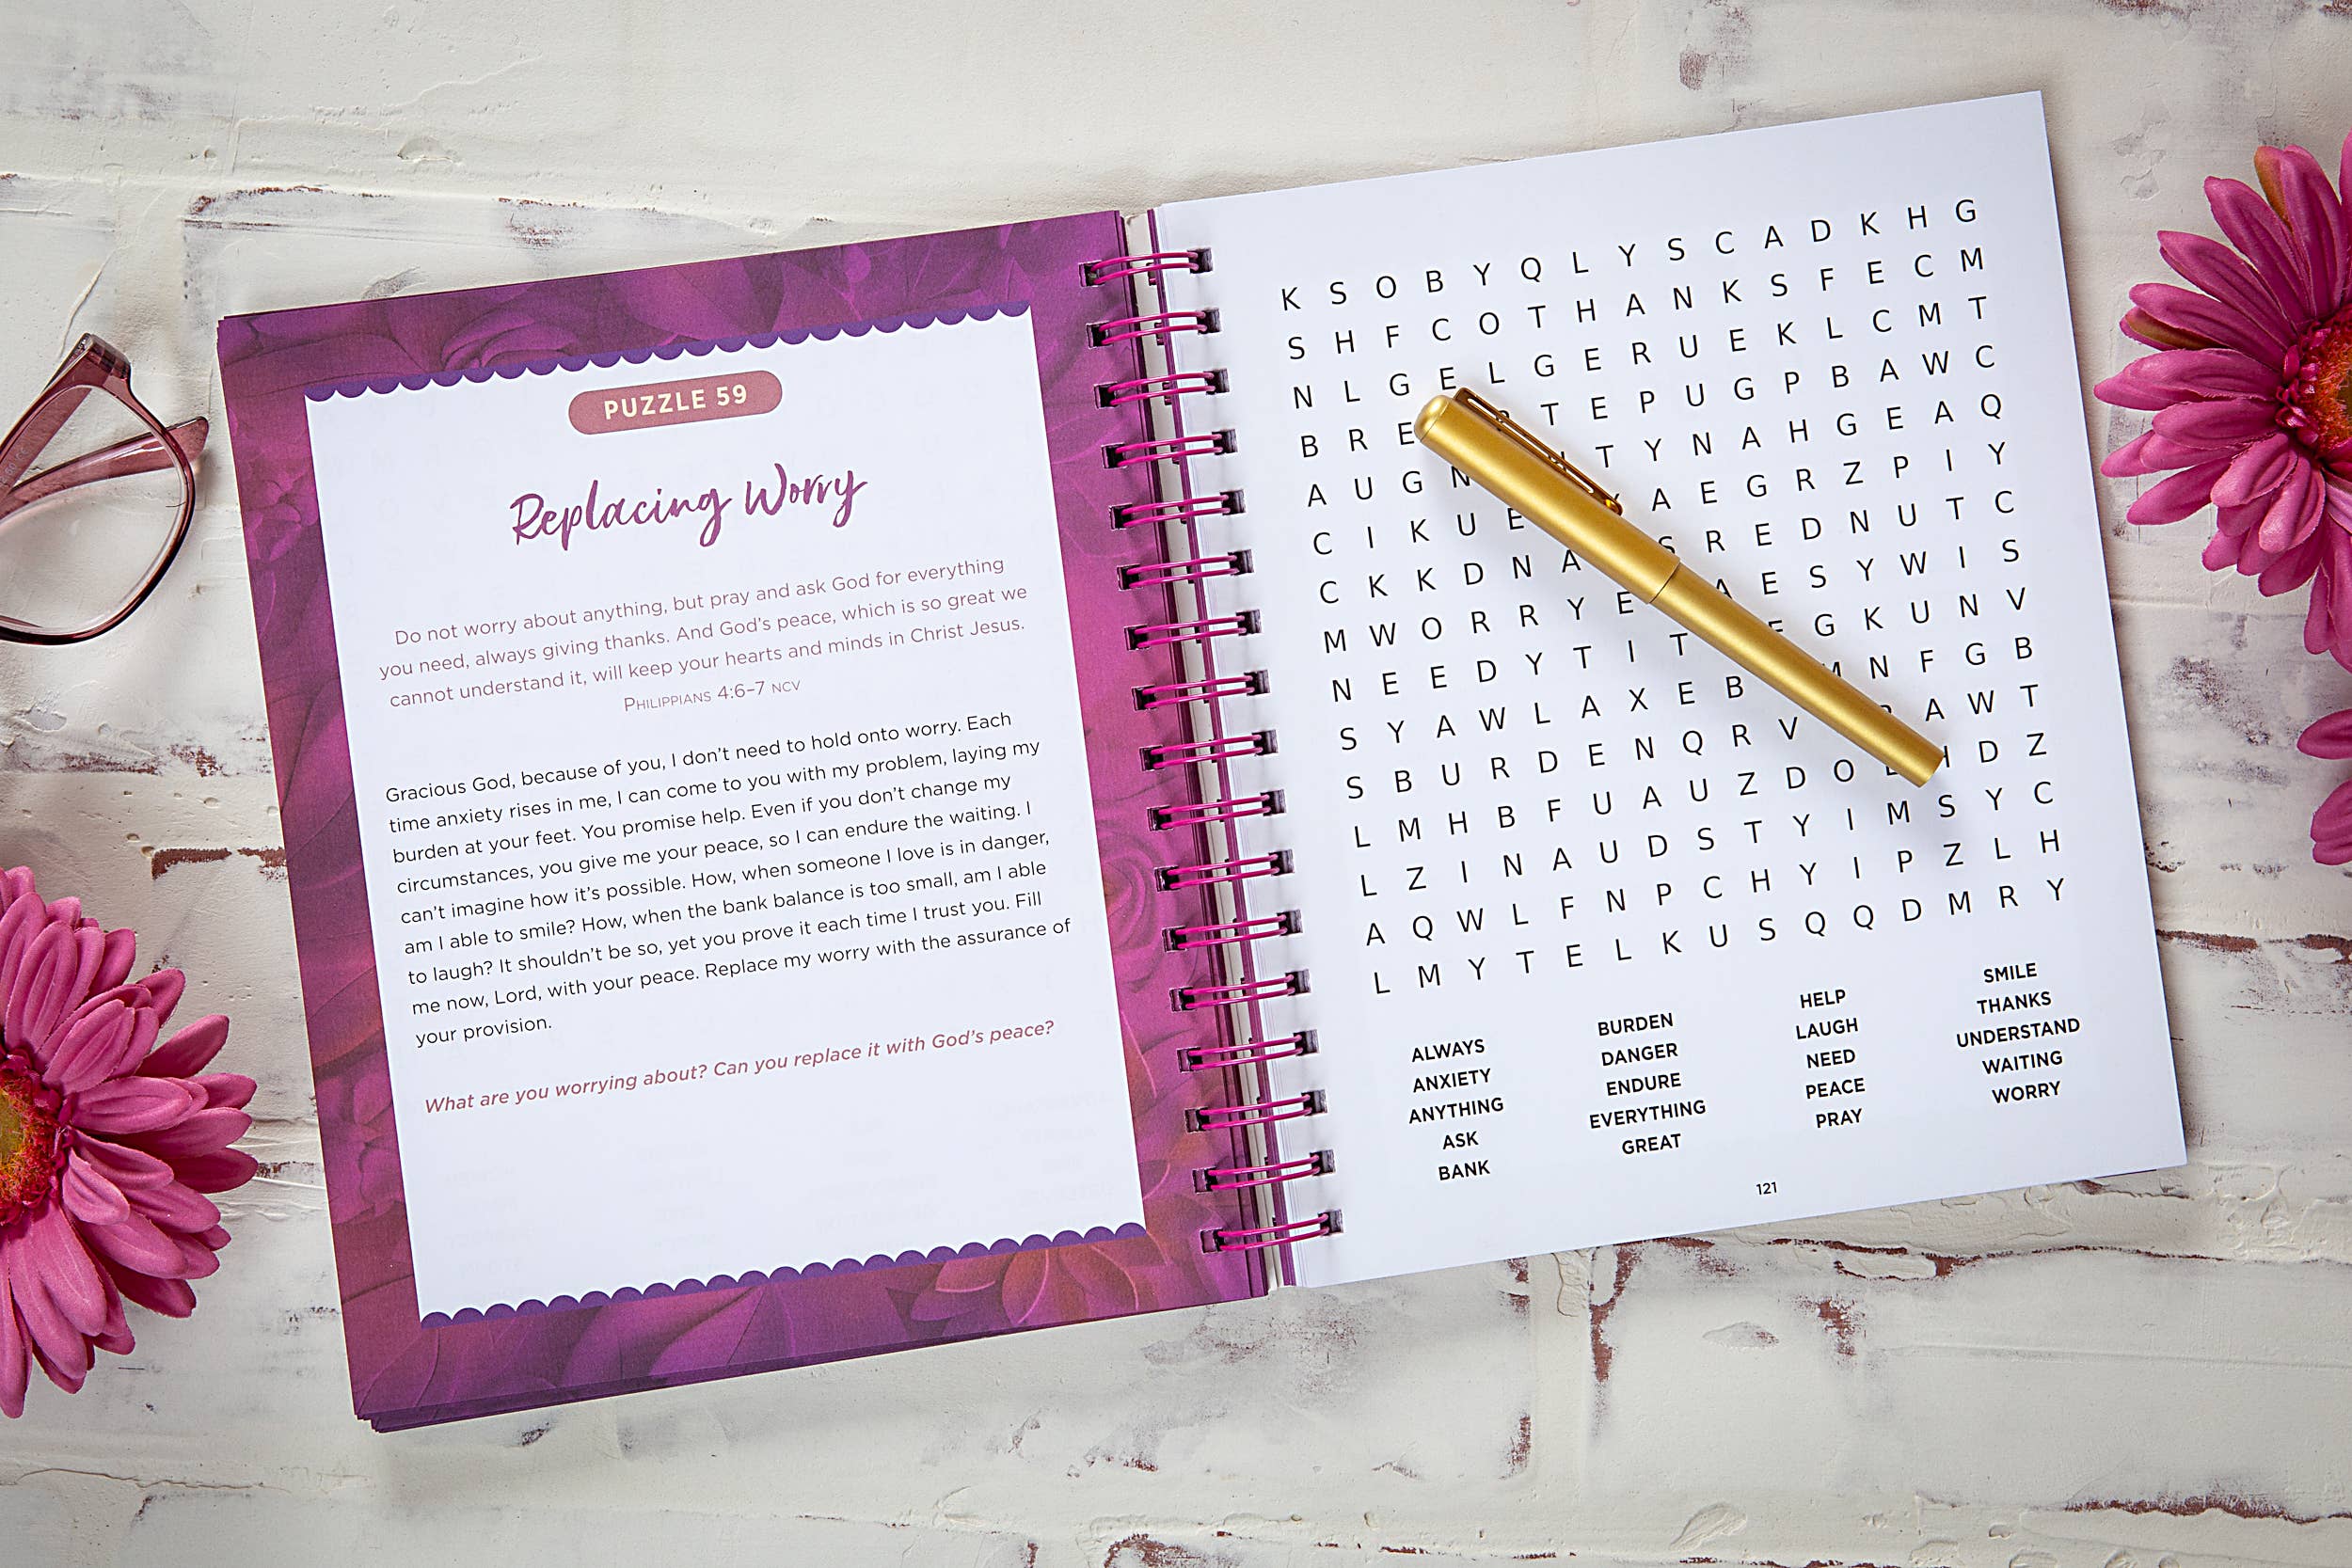 PUZZLE 59
Replacing Worry
Do not worry about anything, but pray and ask God for everything
you need, always giving thanks. And God's peace, which is so great we
cannot understand it, will keep your hearts and minds in Christ Jesus.
PHILIPPIANS 4:6–7 NCV
Gracious God, because of you, I don't need to hold onto worry. Each
time anxiety rises in me, I can come to you with my problem, laying my
burden at your feet. You promise help. Even if you don't change my
circumstances, you give me your peace, so I can endure the waiting. I
can't imagine how it's possible. How, when someone I love is in danger,
am I able to smile? How, when the bank balance is too small, am I able
to laugh? It shouldn't be so, yet you prove it each time I trust you. Fill
me now, Lord, with your peace. Replace my worry with the assurance of
your provision.
What are you worrying about? Can you replace it with God's peace?
K S O B Y Q L Y S C A D K H G
S H F C O T H A N K S F E C M
N L G E L G E R U E K L C M T
B R E T E P U G P B A W C
A U G N T Y N A H G E A Q
C I K U E A E G R Z P I Y
C K K D N A S R E D N U T C
M W O R R Y E A E S Y W I S
N E E D Y T I T G K U N V
S Y A W L A X E B N F G B
S B U R D E N Q R V A W T
L M H B F U A U Z D O H D Z
L Z I N A U D S T Y I M S Y C
A Q W L F N P C H Y I P Z L H
L M Y T E L K U S Q Q D M R Y
ALWAYS
ANXIETY
ANYTHING
ASK
BANK
BURDEN
DANGER
ENDURE
EVERYTHING
GREAT
HELP
LAUGH
NEED
PEACE
PRAY
SMILE
THANKS
UNDERSTAND
WAITING
WORRY
121